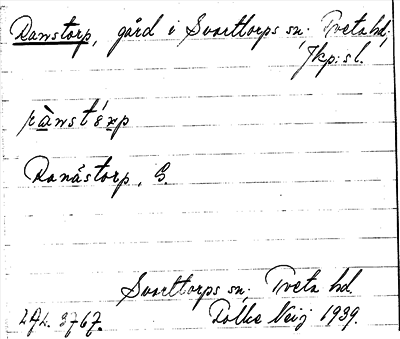 Ranstorp, gård i Svarttorps sn; Tveta hd;
Jkp:s l.
rànst
Ranåstorp, G.
Svarttorps sn; Tveta hd.
3767. Folke 1939.